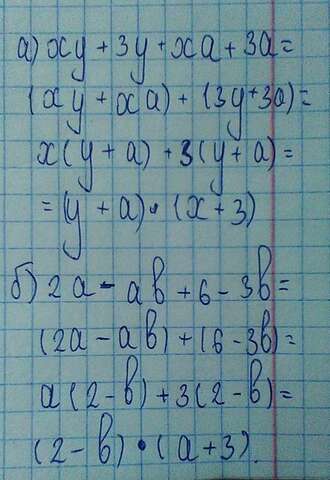 а) xy + 3y + xa + 3a =
(xy + xa) + (3y + 3a) =
x(y + a) + 3(y + a) =
= (y + a) • (x + 3)
б) 2a - ab + 6 - 3b =
(2a - ab) + (6 - 3b) =
a(2 - b) + 3(2 - b) =
(2 - b) • (a + 3)